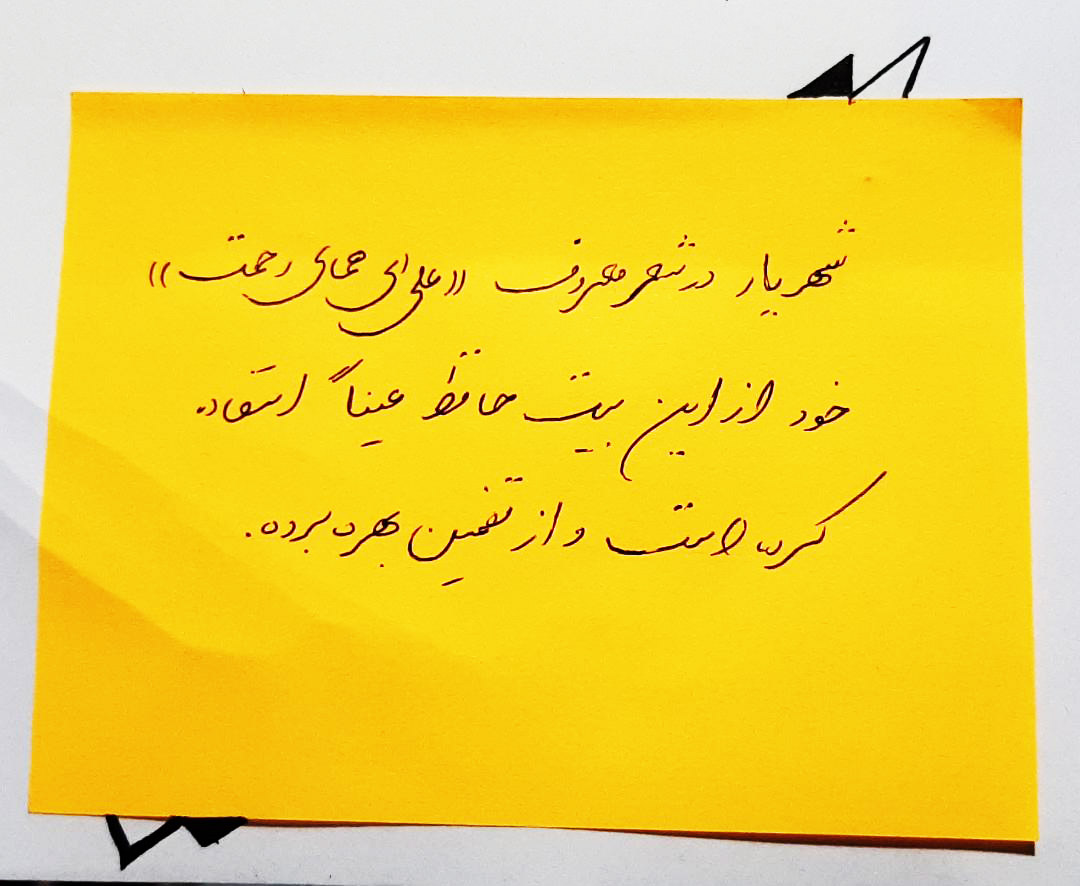 شهریار در شعر معروف ((علی ای همای رحمت))
خود از این بیت حافظ عیناً استفاده
کرده است و از تضمین بهره برده.